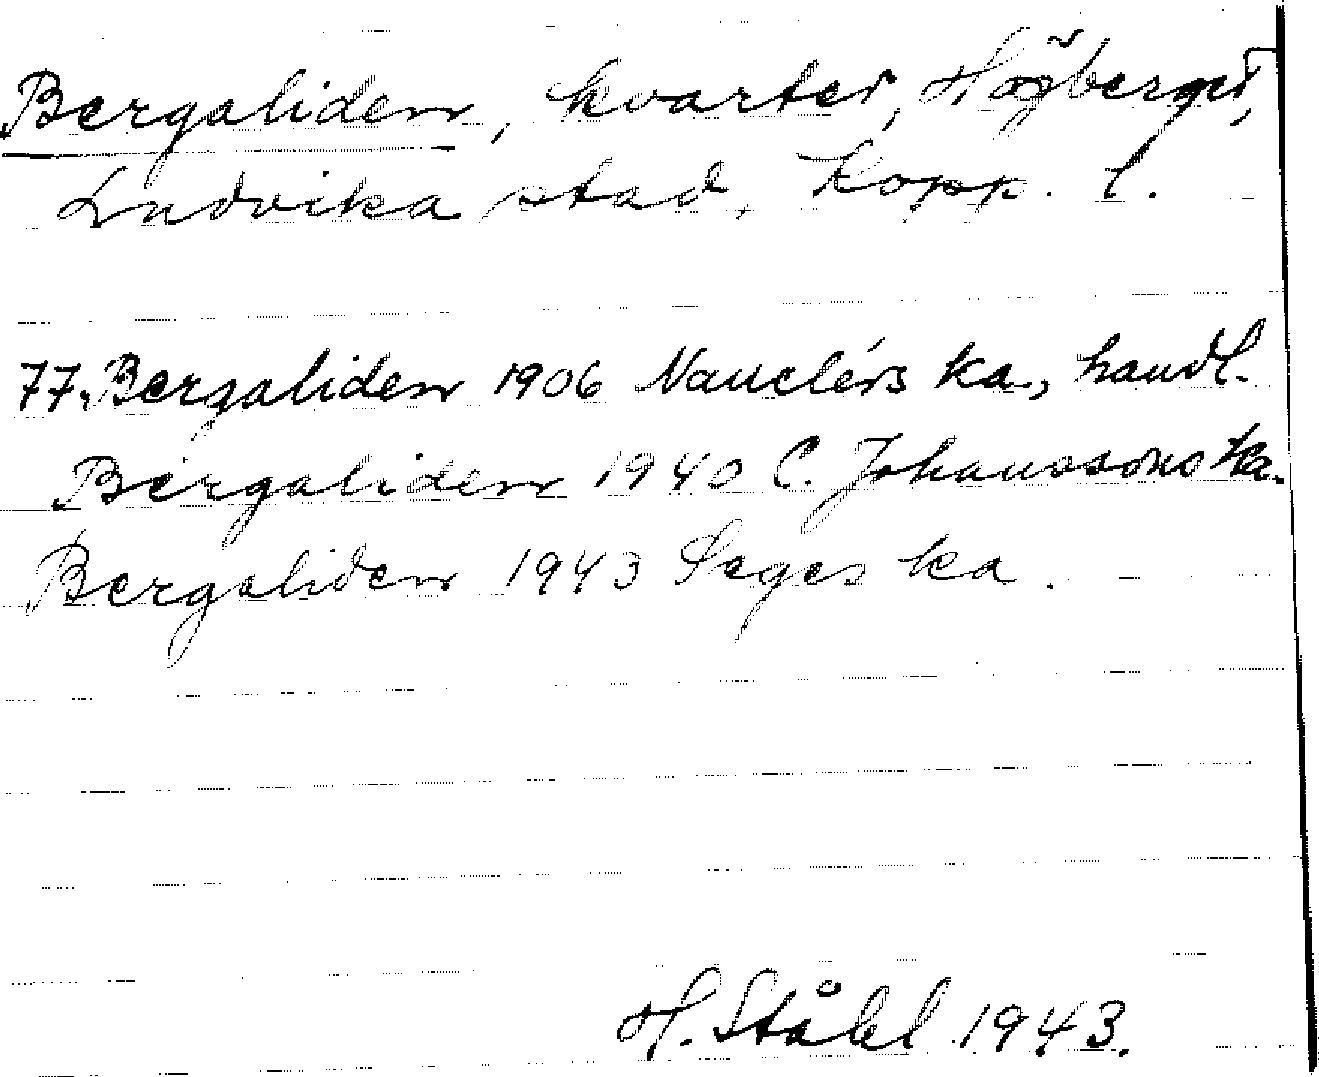 Bergaliden, kvarter, Högberget,
Ludvika stad, Kopp. l.
77. Bergaliden 1906 Nauclérs ka., handl.
Bergaliden 1940 C. Johanssons ka.
Bergaliden 1943 Seges ka.
H. Ståhl 1943.